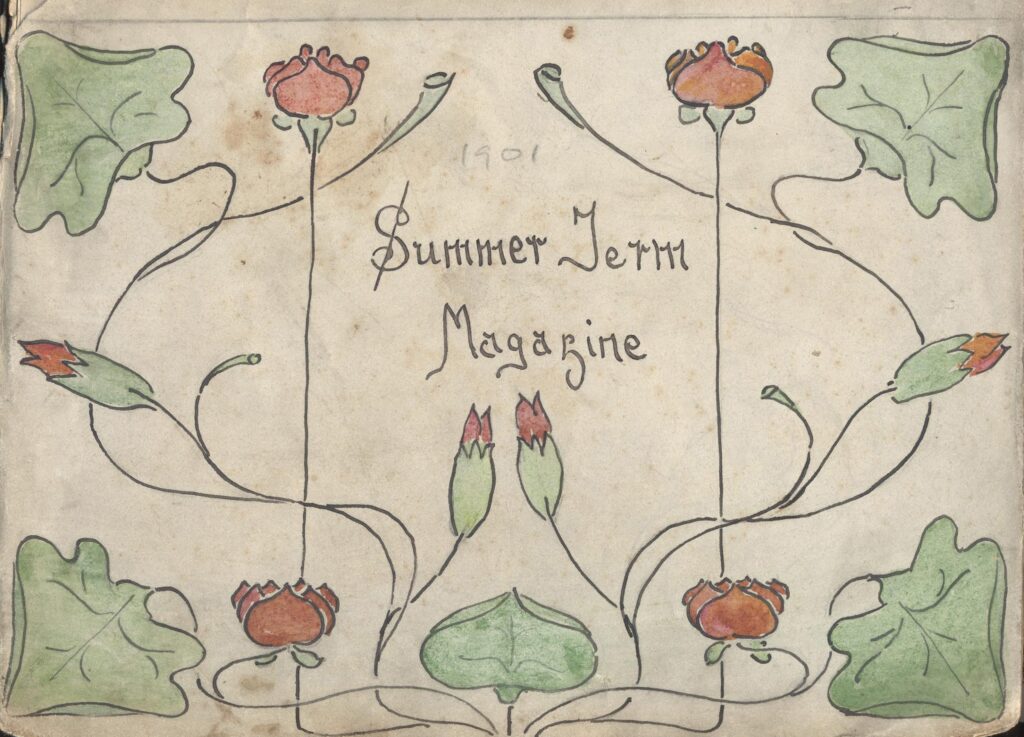 1901
Summer Term
Magazine